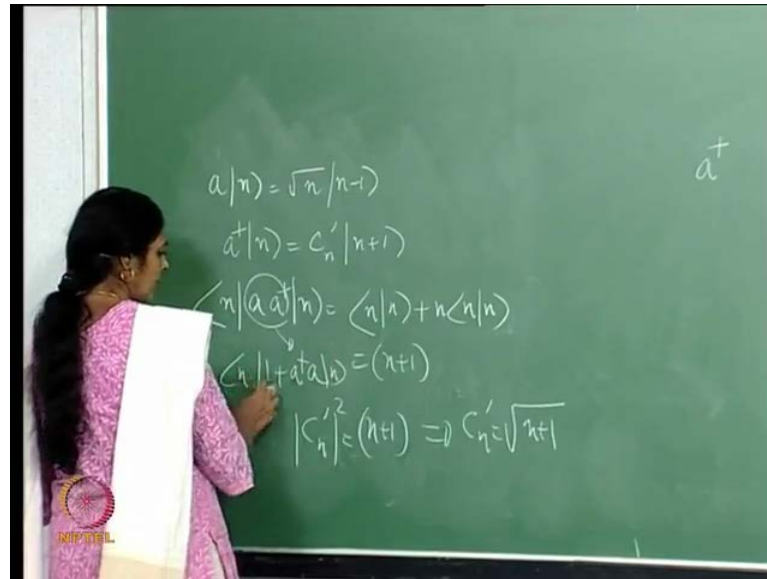 a|n⟩ = √n |n-1⟩
a†
a†|n⟩ = Cn' |n+1⟩
⟨n|a a†|n⟩ = ⟨n|n⟩ + n⟨n|n⟩
⟨n|1 + a†a|n⟩ = (n+1)
|Cn'|² = (n+1) ⇒ Cn' = √n+1
NPTEL